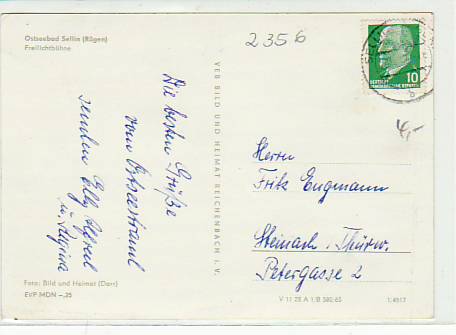 Ostseebad Sellin (Rügen)
Freilichtbühne
2356
SELLIN
10
DEUTSCHE
DEMOKRATISCHE REPUBLIK
4,-
Die besten Grüße
vom Ostseestrand
senden Elly Alfred
u. Regina
VEB BILD UND HEIMAT REICHENBACH I. V.
Herrn
Fritz Engmann
Steinach. Thürw.
Petergasse 2
Foto: Bild und Heimat (Darr)
EVP MDN -,25
V 11 28 A 1/B 380/65
1/4517